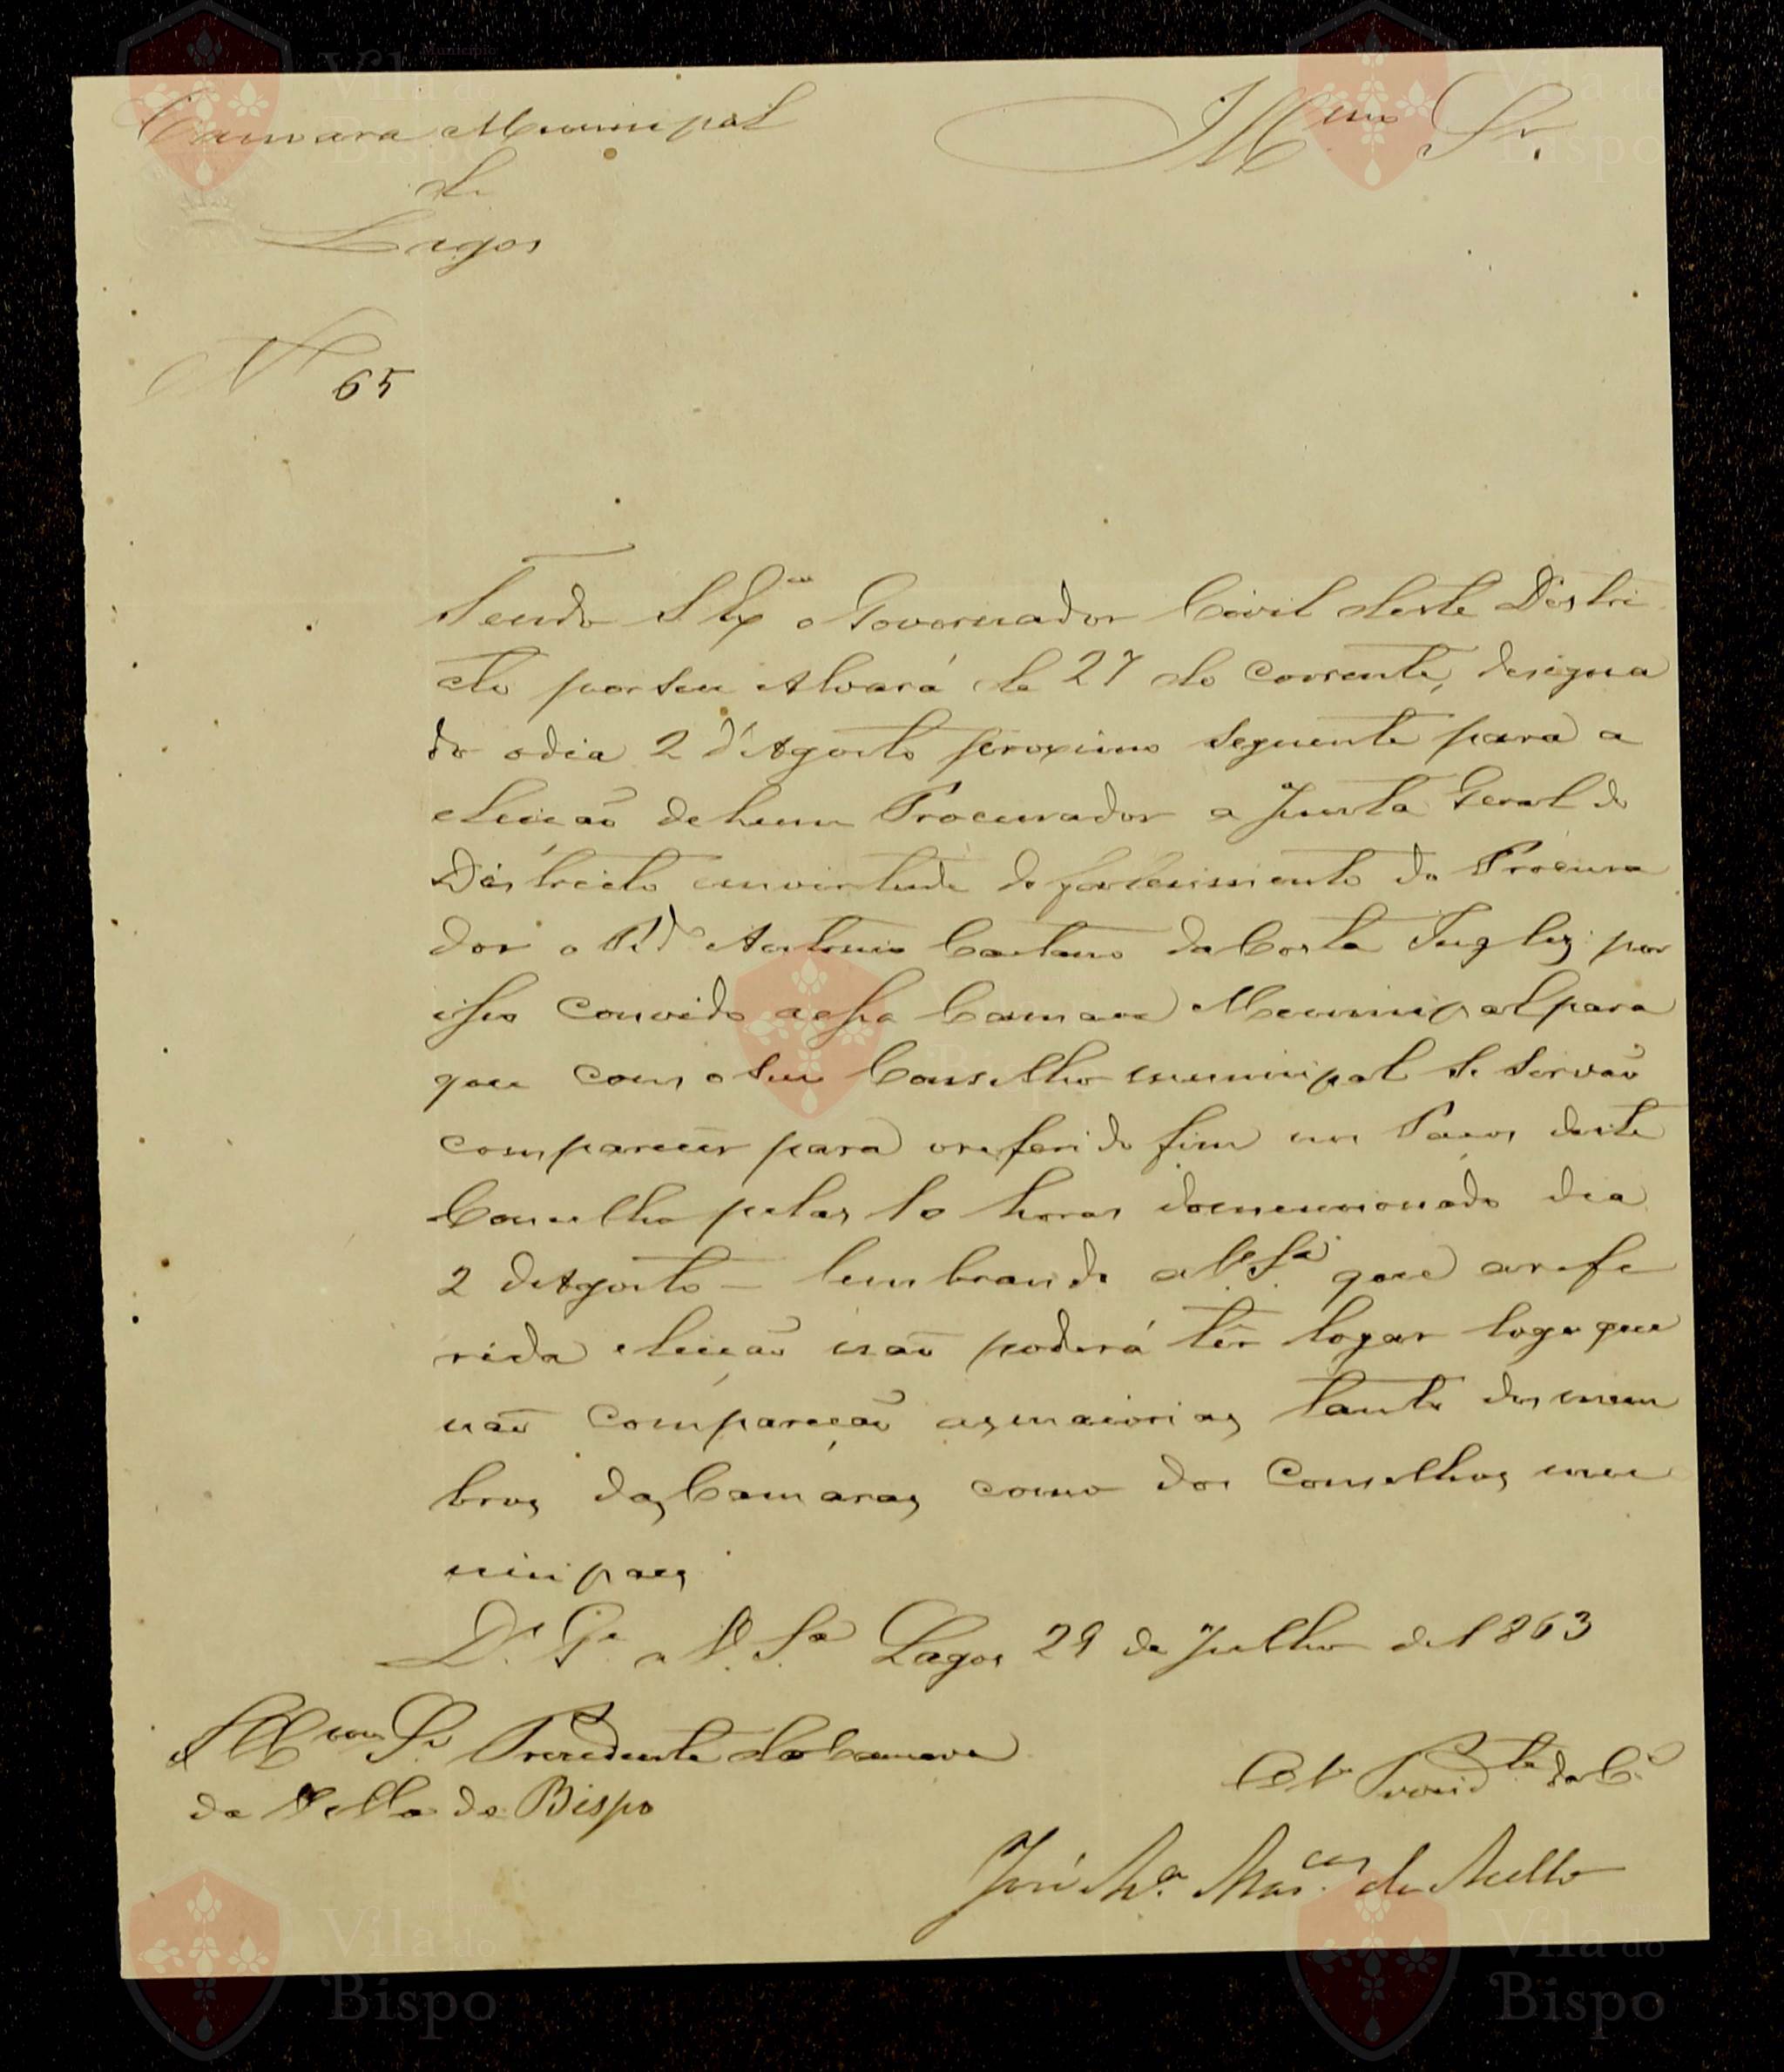 Camara Municipal
de
Lagos
Illmo Sr.
Nº 65
Tendo S Exª o Governador Civil deste Distri
cto por seu Alvará de 27 do corrente, designa
do o dia 2 d'Agosto proximo seguente para a
eleição de hum Procurador a Junta Geral do
Districto em virtude do falecimento do Procura
dor o Rdo Antonio Caetano da Costa Inglez: por
isso convido a essa Camara Municipal para
que com o seu Conselho municipal se servão
comparecer para o referido fim nos Paços deste
Concelho pelas 10 horas do mencionado dia
2 d'Agosto – lembrando a V. Sª que a refe
rida eleição não poderá ter logar logo que
não compareção as maiorias tanto dos mem
bros das Camaras como dos Conselhos mu
nicipaes.
De Ge a V. Sª Lagos 29 de Julho de 1863
Illmo Sr Presidente da Camara
da Villa do Bispo
Presidte da Cª
José Mª de Mello
Município
Vila do
Bispo
Vila do
Bispo
Vila do
Bispo
Vila do
Bispo
Vila do
Bispo